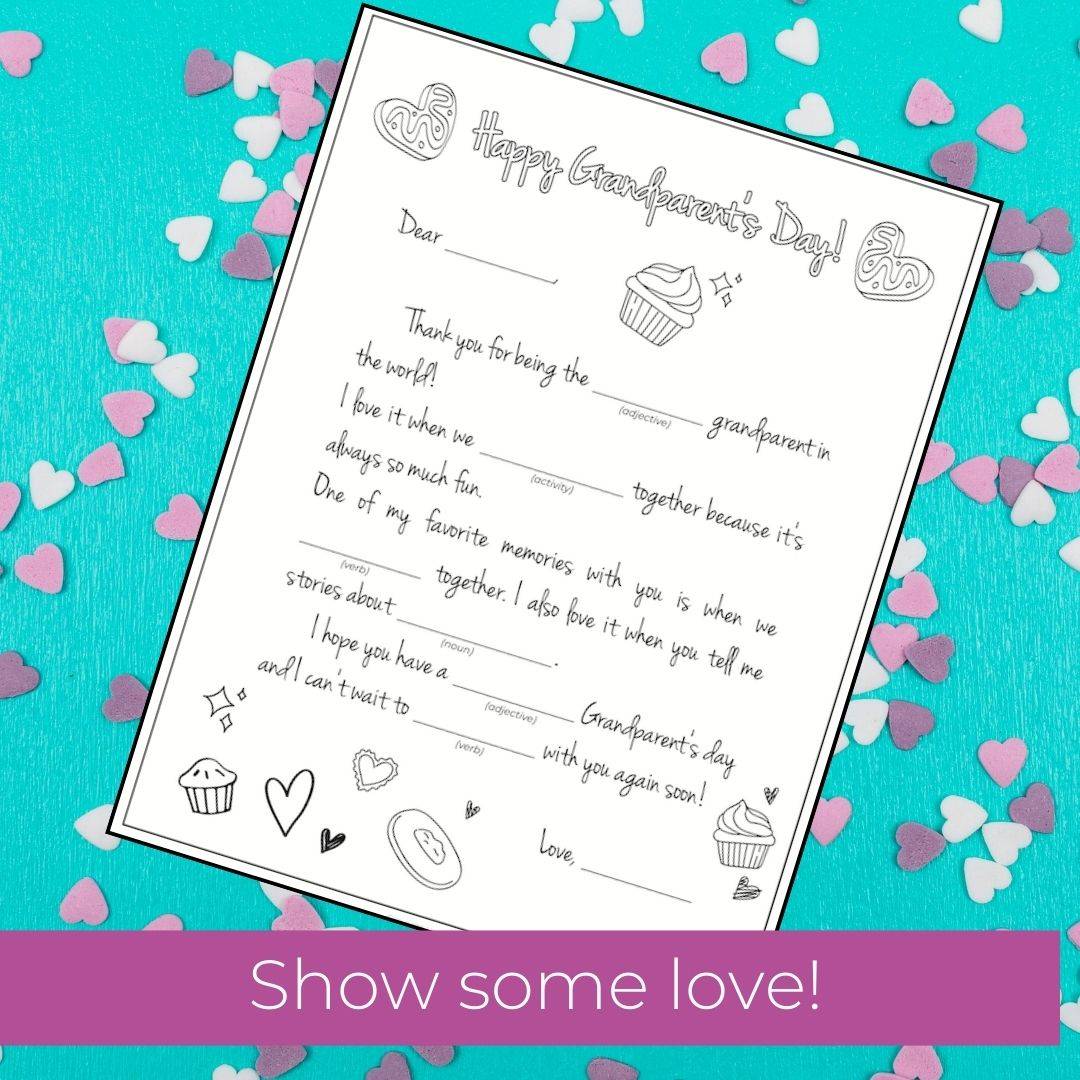 Happy Grandparent's Day!
Dear ____________,
Thank you for being the ____________ grandparent in
(adjective)
the world!
I love it when we ____________ together because it's
(activity)
always so much fun.
One of my favorite memories with you is when we
____________ together. I also love it when you tell me
(verb)
stories about ____________.
(noun)
I hope you have a ____________ Grandparent's day
(adjective)
and I can't wait to ____________ with you again soon!
(verb)
Love, ____________
Show some love!